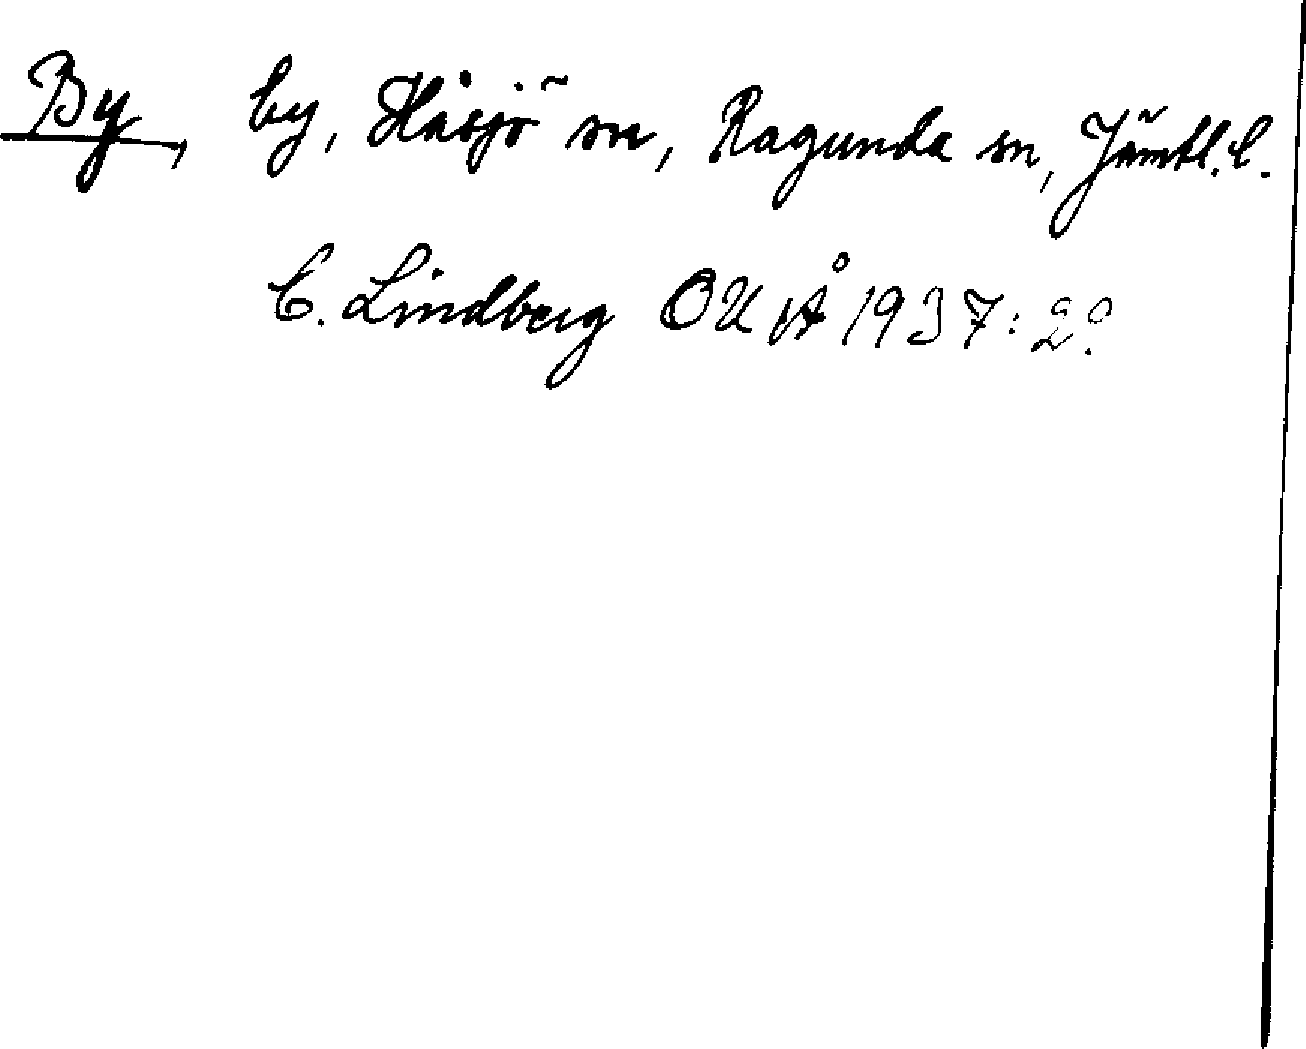 By, by, Håsjö sn, Ragunda sn, Jämtl. l.
C. Lindberg OUÅ 1937: 29.